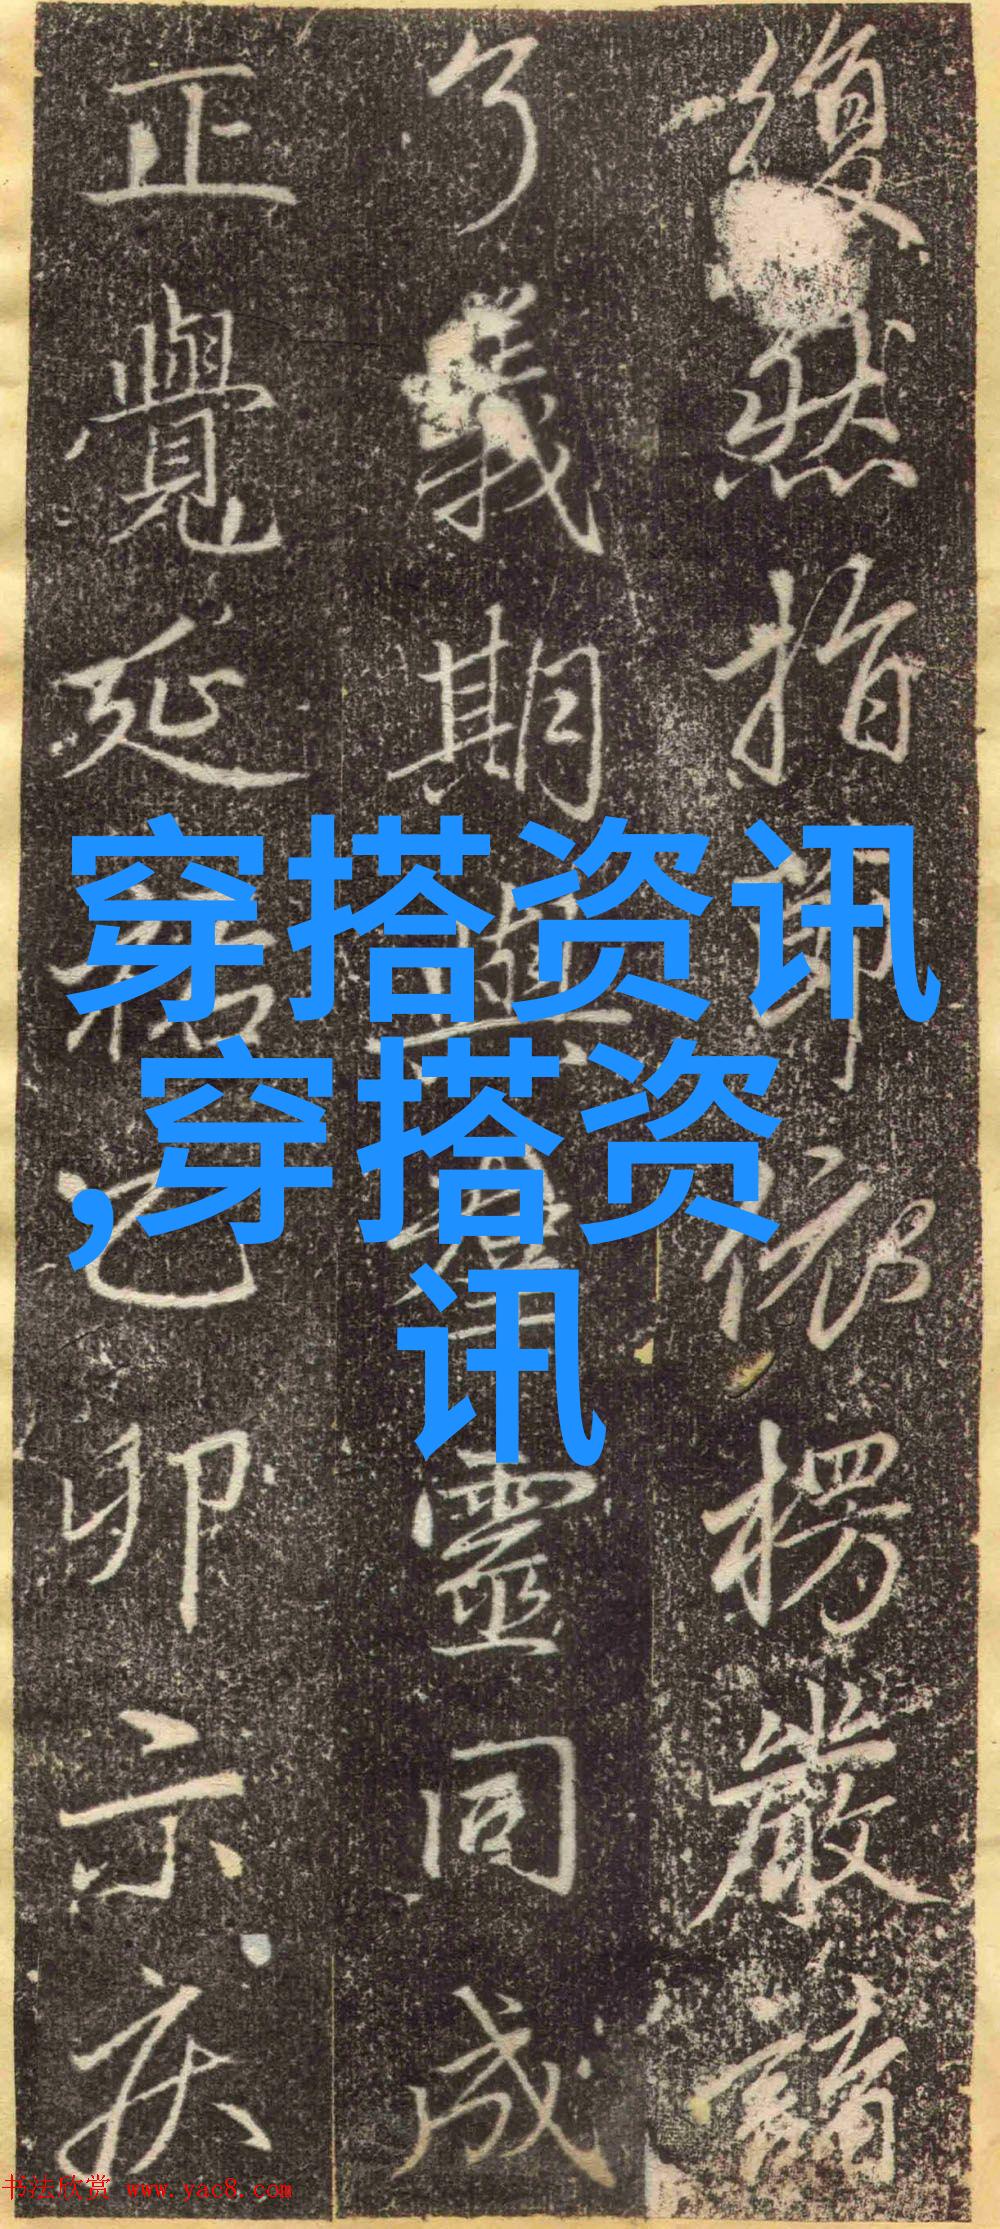 復然指依楞嚴
了義期靈同成
正覺延卯
穿搭资讯
,穿搭资
讯
书法欣赏 www.yac8.com